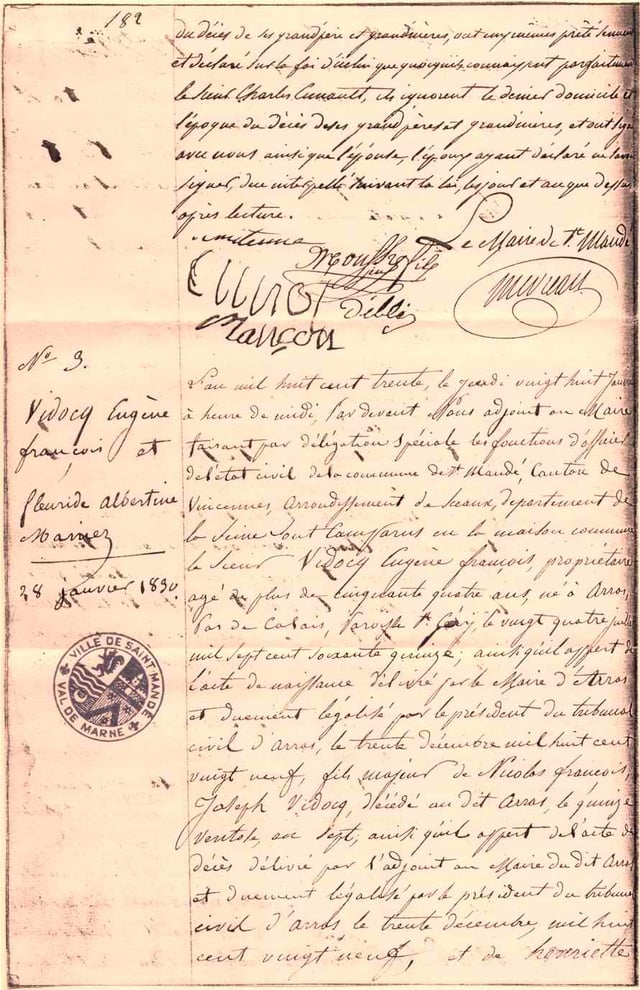 182
du décès de ses grandpère et grandmères, ont eux mêmes prêté serment
et déclaré sur la foi d'icelui que quoiqu'ils connaissent parfaitement
le Sieur Charles, ils ignorent le dernier domicile et
l'époque du décès de ses grand pères et grandmères, et ont signé
avec nous ainsi que l'épouse, l'époux ayant déclaré ne savoir
signer, due interpellé suivant la loi, les jour et an que dessus
après lecture.
Le Maire de St. Mandé
fils
Mançon
No 3.
Vidocq Eugène
françois et
fleuride albertine
Maniez
28 janvier 1830
VILLE DE SAINT MANDÉ
VAL DE MARNE
L'an mil huit cent trente, le jeudi vingt huit Janvier
à heure de midi, Par devant Nous adjoint au Maire
faisant par délégation spéciale les fonctions d'officier
de l'état civil de la commune de St Mandé, Canton de
Vincennes, arrondissement de Sceaux, département de
la Seine Sont Comparus en la maison commune
le Sieur Vidocq Eugene françois, propriétaire
agé de plus de cinquante quatre ans, né à Arras,
Pas de Calais, Paroisse St Géry, le vingt quatre juillet
mil sept cent soixante quinze; ainsi qu'il appert de
l'acte de naissance délivré par le Maire d'Arras
et duement légalisé par le président du tribunal
civil d'Arras, le trente décembre mil huit cent
vingt neuf, fils majeur de Nicolas françois,
Joseph Vidocq, décédé au dit Arras, le quinze
ventose, an Sept; ainsi qu'il appert de l'acte de
décès délivré par l'adjoint au Maire du dit Arras
et duement légalisé par le président du tribunal
civil d'Arras le trente décembre, mil huit
cent vingt neuf, et de henriette